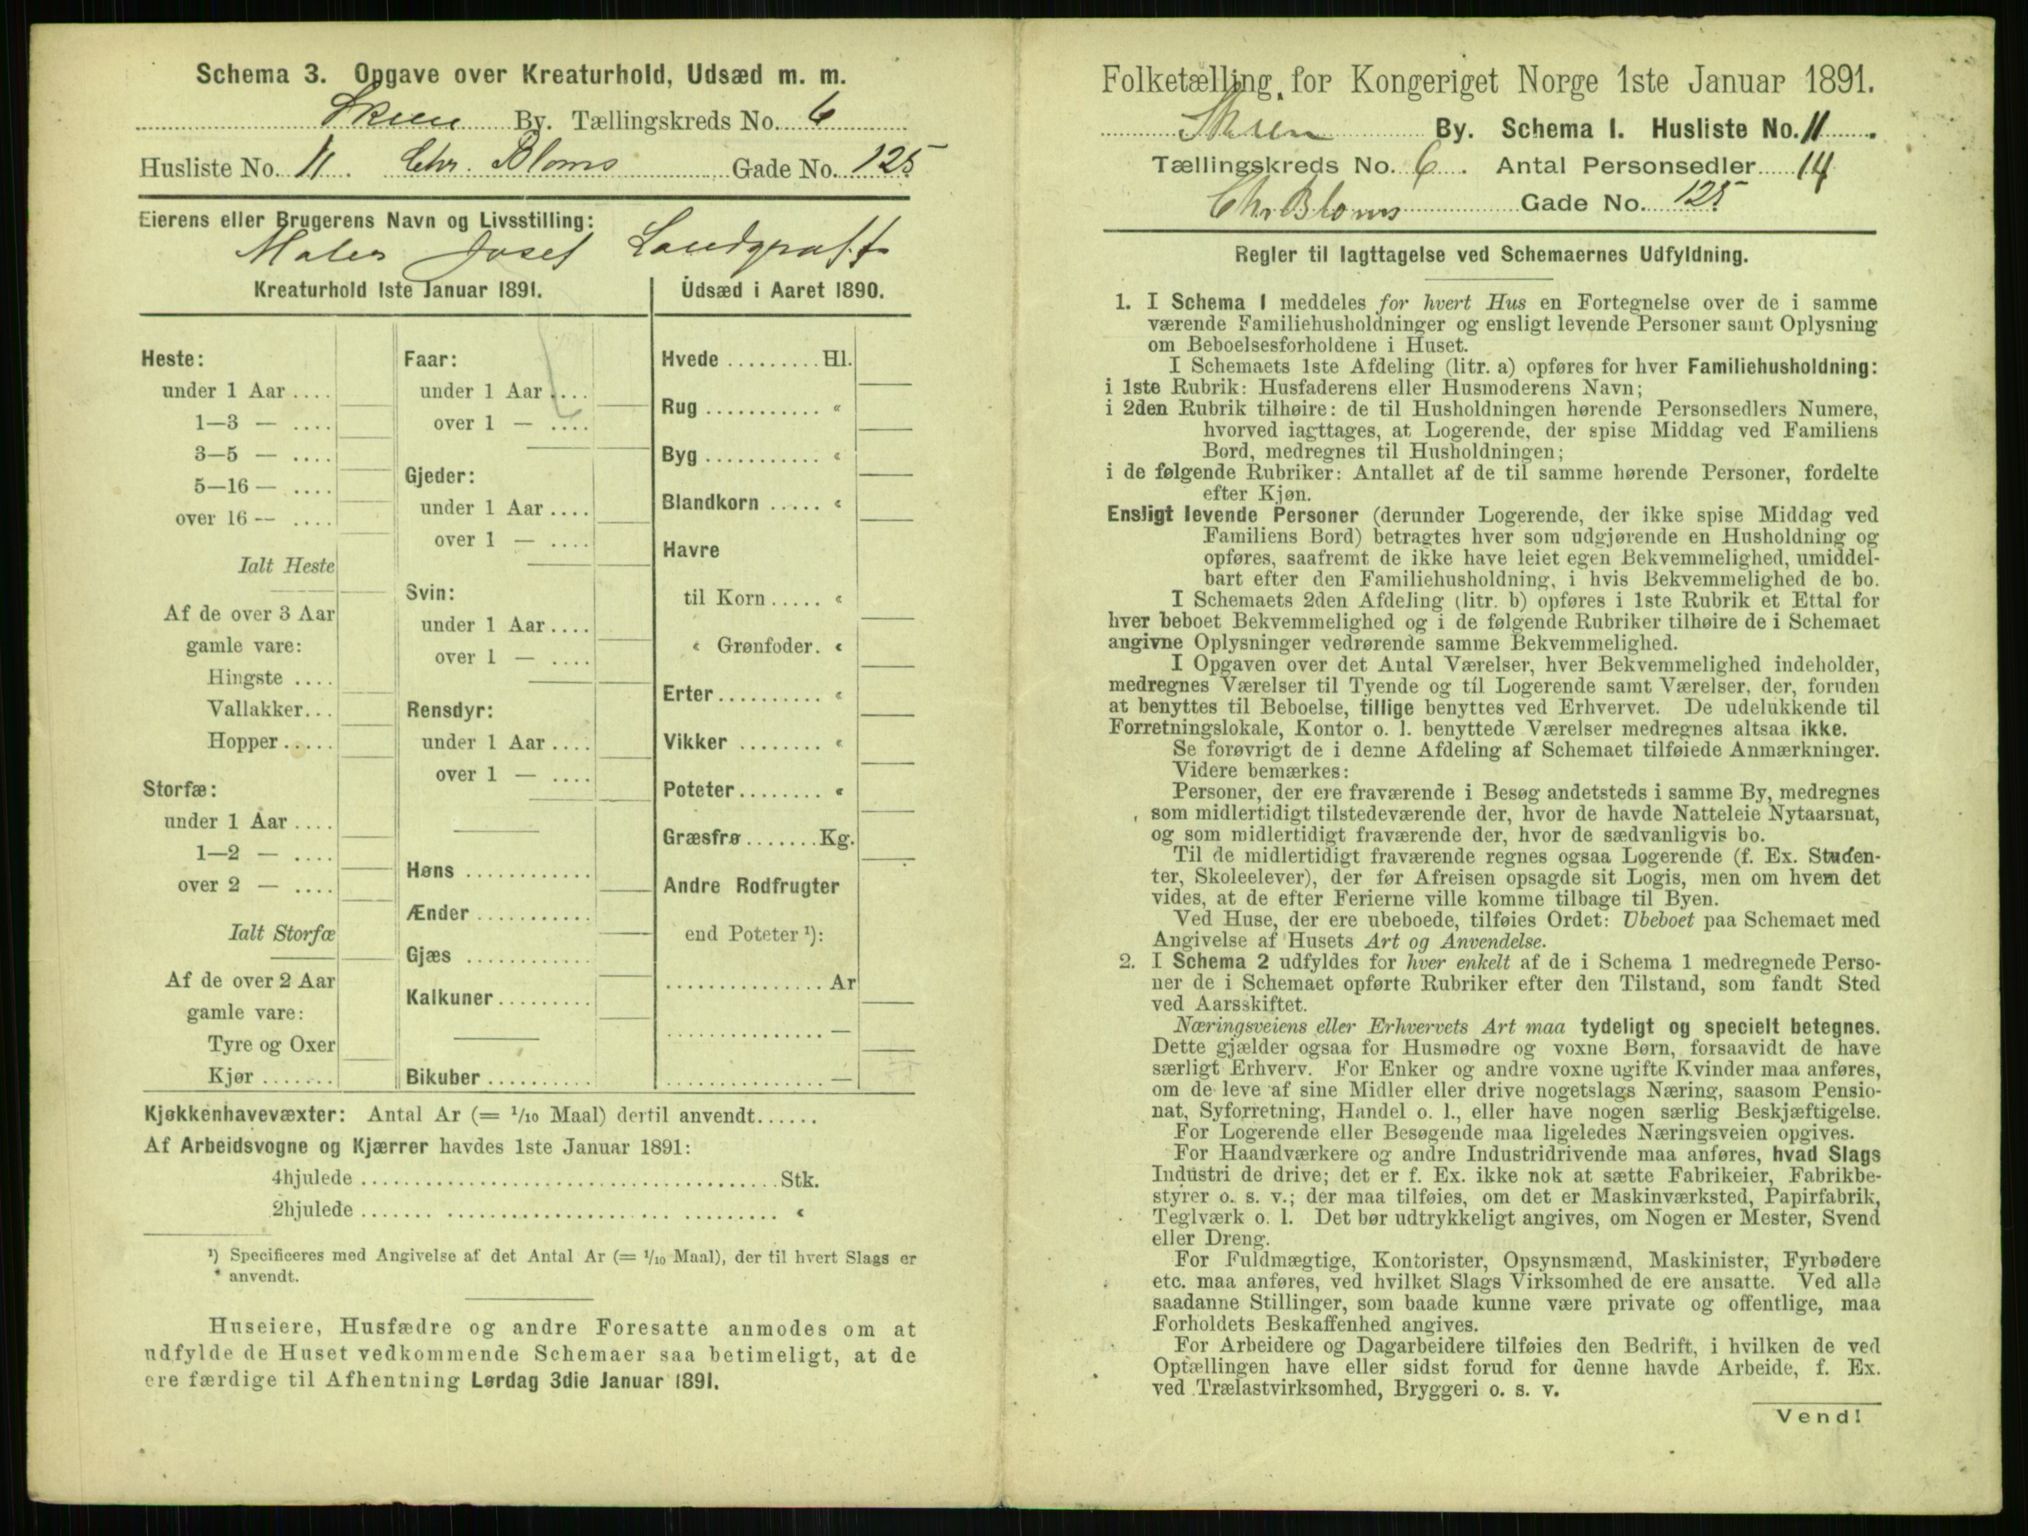 Schema 3. Opgave over Kreaturhold, Udsæd m. m.
Skien By. Tællingskreds No. 6
Husliste No. 11. Chr. Bloms Gade No. 125
Eierens eller Brugerens Navn og Livsstilling:
Maler Josef Landgraff
Kreaturhold 1ste Januar 1891.
Heste:
under 1 Aar ....
1—3 — ....
3—5 — ....
5—16 — ....
over 16 — ....
Ialt Heste
Af de over 3 Aar
gamle vare:
Hingste ....
Vallakker...
Hopper.....
Storfæ:
under 1 Aar ....
1—2 — ....
over 2 — ....
Ialt Storfæ
Af de over 2 Aar
gamle vare:
Tyre og Oxer
Kjør .......
Faar:
under 1 Aar ....
over 1 — ....
Gjeder:
under 1 Aar ....
over 1 — ....
Svin:
under 1 Aar ....
over 1 — ....
Rensdyr:
under 1 Aar ....
over 1 — ....
Høns ............
Ænder ...........
Gjæs ............
Kalkuner.........
Bikuber ..........
Udsæd i Aaret 1890.
Hvede ......... Hl.
Rug ........... «
Byg ........... «
Blandkorn ..... «
Havre
til Korn ..... «
« Grønfoder. «
Erter.......... «
Vikker ........ «
Poteter........ «
Græsfrø .......Kg.
Andre Rodfrugter
end Poteter ¹):
............... Ar
............... —
............... —
Kjøkkenhavevæxter: Antal Ar (= 1/10 Maal) dertil anvendt......
Af Arbeidsvogne og Kjærrer havdes 1ste Januar 1891:
4hjulede ........................................ Stk.
2hjulede ........................................ «
¹) Specificeres med Angivelse af det Antal Ar (= 1/10 Maal), der til hvert Slags er
anvendt.
Huseiere, Husfædre og andre Foresatte anmodes om at
udfylde de Huset vedkommende Schemaer saa betimeligt, at de
ere færdige til Afhentning Lørdag 3die Januar 1891.
Folketælling for Kongeriget Norge 1ste Januar 1891.
Skien By. Schema I. Husliste No. 11.
Tællingskreds No. 6. Antal Personsedler 14
Chr Bloms Gade No. 125
Regler til Iagttagelse ved Schemaernes Udfyldning.
1. I Schema 1 meddeles for hvert Hus en Fortegnelse over de i samme
værende Familiehusholdninger og ensligt levende Personer samt Oplysning
om Beboelsesforholdene i Huset.
I Schemaets 1ste Afdeling (litr. a) opføres for hver Familiehusholdning:
i 1ste Rubrik: Husfaderens eller Husmoderens Navn;
i 2den Rubrik tilhøire: de til Husholdningen hørende Personsedlers Numere,
hvorved iagttages, at Logerende, der spise Middag ved Familiens
Bord, medregnes til Husholdningen;
i de følgende Rubriker: Antallet af de til samme hørende Personer, fordelte
efter Kjøn.
Ensligt levende Personer (derunder Logerende, der ikke spise Middag ved
Familiens Bord) betragtes hver som udgjørende en Husholdning og
opføres, saafremt de ikke have leiet egen Bekvemmelighed, umiddel-
bart efter den Familiehusholdning, i hvis Bekvemmelighed de bo.
I Schemaets 2den Afdeling (litr. b) opføres i 1ste Rubrik et Ettal for
hver beboet Bekvemmelighed og i de følgende Rubriker tilhøire de i Schemaet
angivne Oplysninger vedrørende samme Bekvemmelighed.
I Opgaven over det Antal Værelser, hver Bekvemmelighed indeholder,
medregnes Værelser til Tyende og til Logerende samt Værelser, der, foruden
at benyttes til Beboelse, tillige benyttes ved Erhvervet. De udelukkende til
Forretningslokale, Kontor o. l. benyttede Værelser medregnes altsaa ikke.
Se forøvrigt de i denne Afdeling af Schemaet tilføiede Anmærkninger.
Videre bemærkes:
Personer, der ere fraværende i Besøg andetsteds i samme By, medregnes
som midlertidigt tilstedeværende der, hvor de havde Natteleie Nytaarsnat,
og som midlertidigt fraværende der, hvor de sædvanligvis bo.
Til de midlertidigt fraværende regnes ogsaa Logerende (f. Ex. Studen-
ter, Skoleelever), der før Afreisen opsagde sit Logis, men om hvem det
vides, at de efter Ferierne ville komme tilbage til Byen.
Ved Huse, der ere ubeboede, tilføies Ordet: Ubeboet paa Schemaet med
Angivelse af Husets Art og Anvendelse.
2. I Schema 2 udfyldes for hver enkelt af de i Schema 1 medregnede Perso-
ner de i Schemaet opførte Rubriker efter den Tilstand, som fandt Sted
ved Aarsskiftet.
Næringsveiens eller Erhvervets Art maa tydeligt og specielt betegnes.
Dette gjælder ogsaa for Husmødre og voxne Børn, forsaavidt de have
særligt Erhverv. For Enker og andre voxne ugifte Kvinder maa anføres,
om de leve af sine Midler eller drive nogetslags Næring, saasom Pensio-
nat, Syforretning, Handel o. l., eller have nogen særlig Beskjæftigelse.
For Logerende eller Besøgende maa ligeledes Næringsveien opgives.
For Haandværkere og andre Industridrivende maa anføres, hvad Slags
Industri de drive; det er f. Ex. ikke nok at sætte Fabrikeier, Fabrikbe-
styrer o. s. v.; der maa tilføies, om det er Maskinværksted, Papirfabrik,
Teglværk o. l. Det bør udtrykkeligt angives, om Nogen er Mester, Svend
eller Dreng.
For Fuldmægtige, Kontorister, Opsynsmænd, Maskinister, Fyrbødere
etc. maa anføres, ved hvilket Slags Virksomhed de ere ansatte. Ved alle
saadanne Stillinger, som baade kunne være private og offentlige, maa
Forholdets Beskaffenhed angives.
For Arbeidere og Dagarbeidere tilføies den Bedrift, i hvilken de ved
Optællingen have eller sidst forud for denne havde Arbeide, f. Ex.
ved Trælastvirksomhed, Bryggeri o. s. v.
Vend!